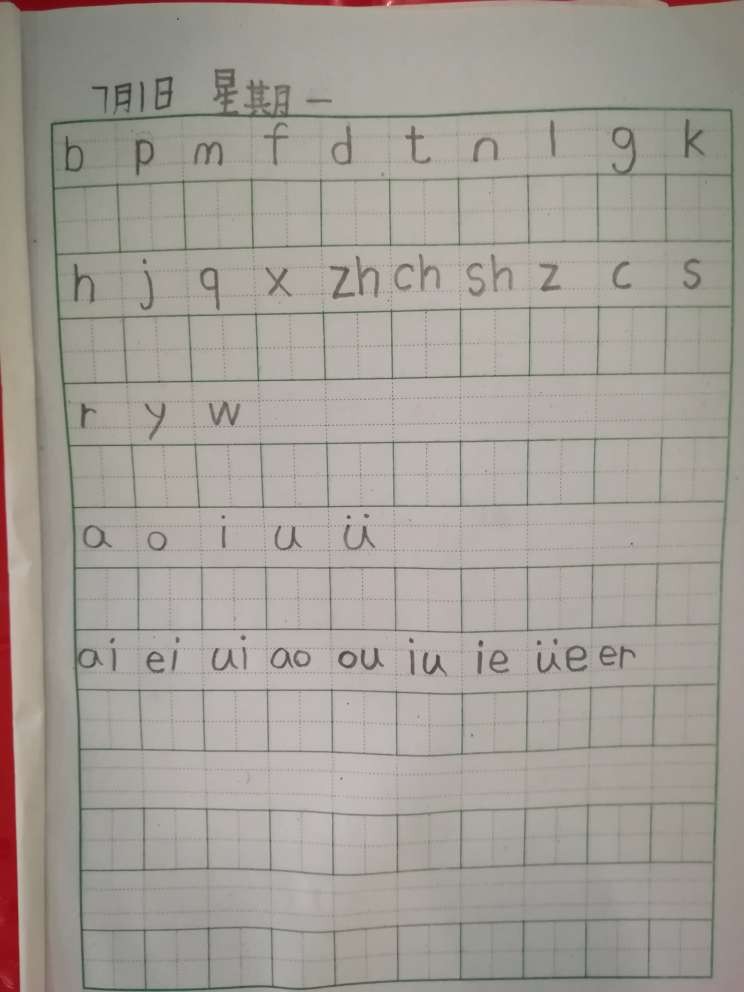 7月1日 星期一
b p m f d t n l g k
h j q x zh ch sh z c s
r y w
a o i u ü
ai ei ui ao ou iu ie üe er